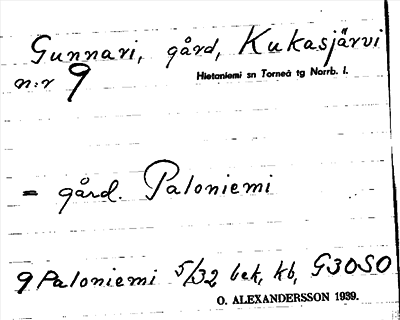 Gunnari, gård, Kukasjärvi
n:r 9
Hietaniemi sn Torneå tg Norrb. l.
= gård. Paloniemi
9 Paloniemi 5/32 bek, kb, G30SO
O. ALEXANDERSSON 1939.